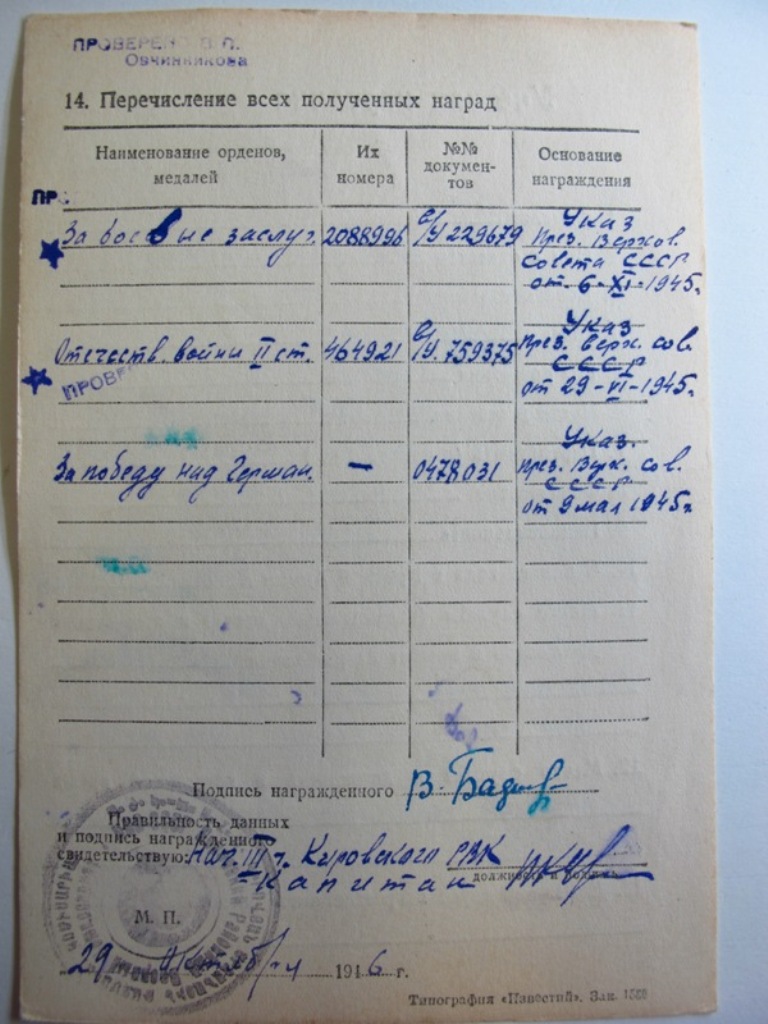 ПРОВЕРЕНО
Овчинникова
14. Перечисление всех полученных наград
Наименование орденов, медалей
Их номера
№№ докумен-тов
Основание награждения
За боевые заслуг. 2088996 в/у 229679 Указ
През. Верхов.
совета СССР
от 6-XI-1945г.
Отечеств. войны II ст. 464921 в/у 759375 Указ
През. Верх. сов.
СССР
ПРОВЕ
от 29-VI-1945г.
За победу над Герман. — 0478031 Указ.
През. Верх. сов.
СССР
от 9 мая 1945г.
Подпись награжденного
Правильность данных
и подпись награжденного
свидетельствую: Нач. III ч. Кировского РВК
Капитан
должность и подпись
М. П.
29 октября 1946 г.
Типография «Известий». Зак.